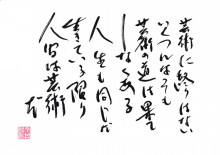 芸術に終りはない
いくつんなっても
芸術の道は果て
しなくある
人生も同じだ
生きている限り
人生は芸術
だ